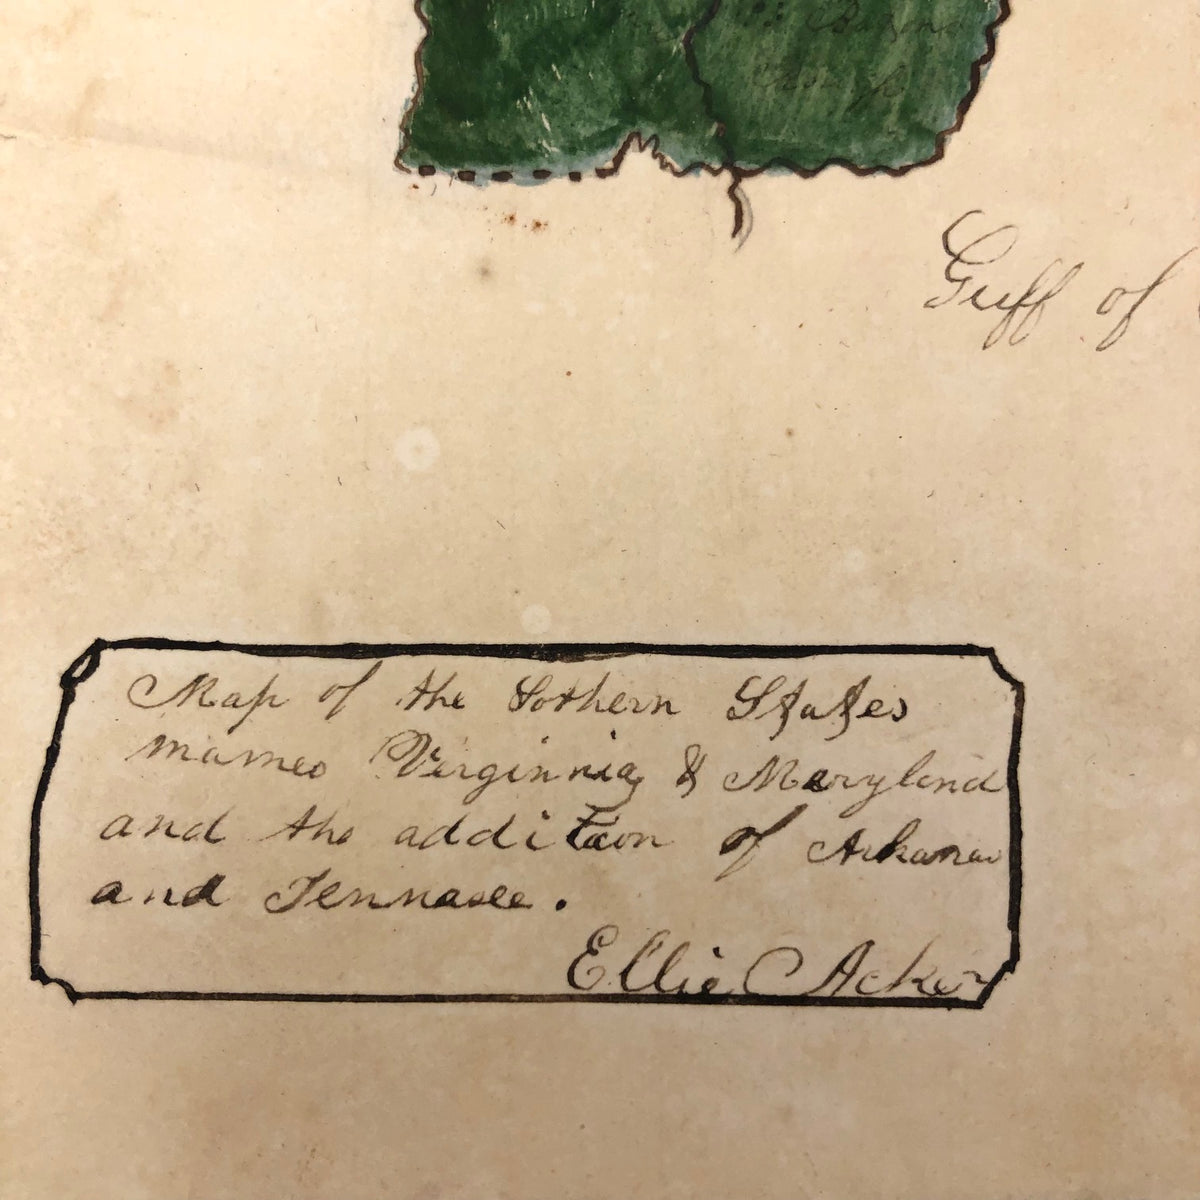 Guff of
Map of the Sothern States
mames Verginnia & Maryland
and the addition of Arkansas
and Tennasee.
Ellie Acker